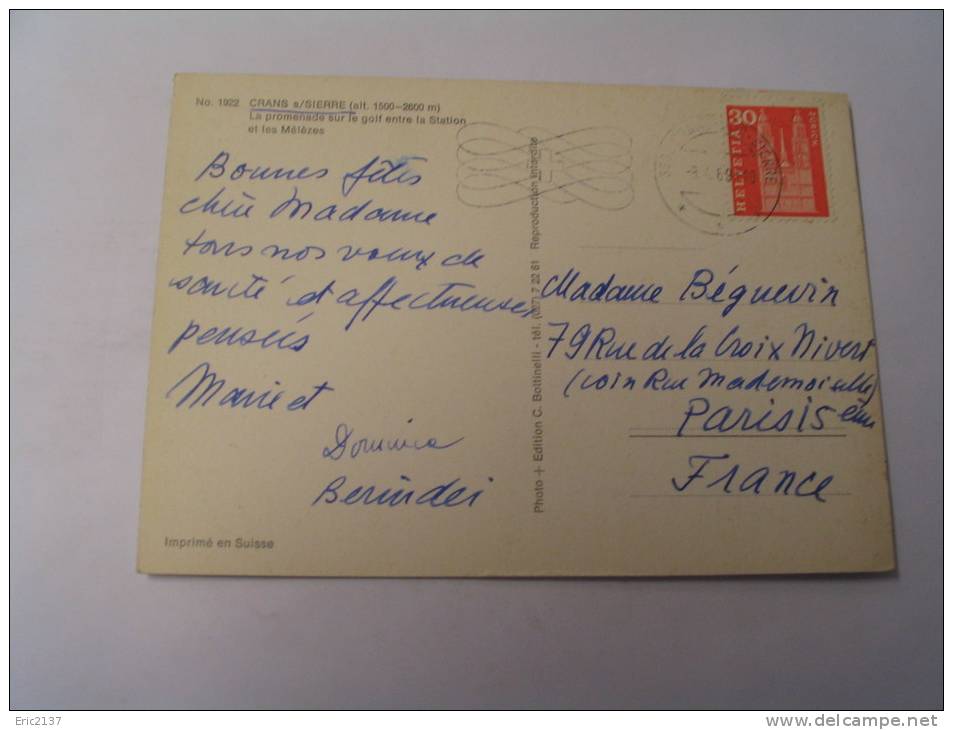 No. 1922 CRANS s/SIERRE (alt. 1500-2600 m)
La promenade sur le golf entre la Station
et les Mélèzes
Bonnes fêtes
chère Madame
tous nos voeux de
santé et affectueuses
pensées
Marie et
Dominica
Berindei
Imprimé en Suisse
Photo + Edition C. Bottinelli - tél. (027) 7 22 61 Reproduction interdite
30
HELVETIA
ZÜRICH
SIERRE
Madame Béguevin
79 Rue de la Croix Nivert
(coin Rue Mademoiselle)
Paris 15 ème
France
Eric2137
delcampe.net